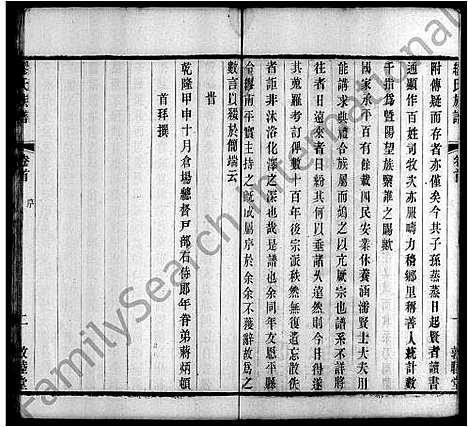 繆氏族譜
卷首
一
敦睦堂
附傳疑而存者亦僅矣今其子孫蒸蒸日起賢者讀書
通顯作百姓司牧次亦服疇力穡鄉里稱善人統計數
千指爲暨陽望族繄誰之賜歟
國家承平百有餘載四民安業休養涵濡賢士大夫用
能講求典禮合族屬而塢之以亢厥宗也譜系不詳將
往者日遠來者日紛其何以垂諸久遠然則今日得遂
其蒐羅考訂俾數十百年後宗派秩然無復遺忘散佚
者詎非沐浴化澤之深也哉是譜也余同年友恩平縣
令海南平實主持之旣成屬序於余余不獲辭故爲之
數言以綴於簡端云
旹
乾隆甲申十月倉場總督戶部右侍郎年眷弟蔣炳頓
首拜撰
繆氏族譜
卷首
序
二
敦睦堂
FamilySearch International